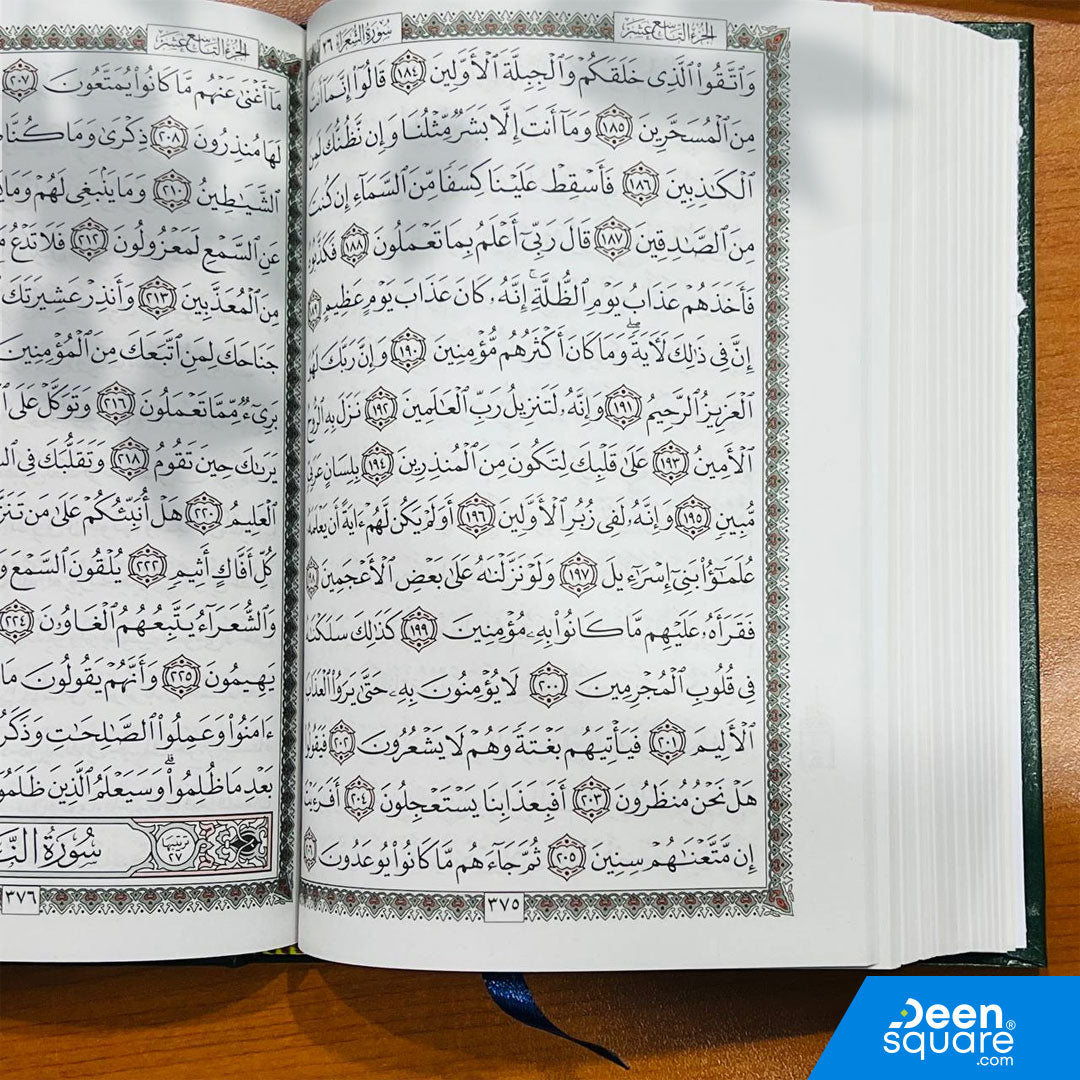 سُورَةُ الشُّعَرَاء ٢٦
الجُزءُ التَّاسِعَ عَشَرَ
وَٱتَّقُواْ ٱلَّذِى خَلَقَكُمْ وَٱلْجِبِلَّةَ ٱلْأَوَّلِينَ ١٨٤ قَالُوٓاْ إِنَّمَآ أَنتَ
مِنَ ٱلْمُسَحَّرِينَ ١٨٥ وَمَآ أَنتَ إِلَّا بَشَرٌ مِّثْلُنَا وَإِن نَّظُنُّكَ لَمِنَ
ٱلْكَٰذِبِينَ ١٨٦ فَأَسْقِطْ عَلَيْنَا كِسَفًا مِّنَ ٱلسَّمَآءِ إِن كُنتَ
مِنَ ٱلصَّٰدِقِينَ ١٨٧ قَالَ رَبِّىٓ أَعْلَمُ بِمَا تَعْمَلُونَ ١٨٨ فَكَذَّبُوهُ
فَأَخَذَهُمْ عَذَابُ يَوْمِ ٱلظُّلَّةِ ۚ إِنَّهُۥ كَانَ عَذَابَ يَوْمٍ عَظِيمٍ ١٨٩
إِنَّ فِى ذَٰلِكَ لَءَايَةً ۖ وَمَا كَانَ أَكْثَرُهُم مُّؤْمِنِينَ ١٩٠ وَإِنَّ رَبَّكَ لَهُوَ
ٱلْعَزِيزُ ٱلرَّحِيمُ ١٩١ وَإِنَّهُۥ لَتَنزِيلُ رَبِّ ٱلْعَٰلَمِينَ ١٩٢ نَزَلَ بِهِ ٱلرُّوحُ
ٱلْأَمِينُ ١٩٣ عَلَىٰ قَلْبِكَ لِتَكُونَ مِنَ ٱلْمُنذِرِينَ ١٩٤ بِلِسَانٍ عَرَبِىٍّ
مُّبِينٍ ١٩٥ وَإِنَّهُۥ لَفِى زُبُرِ ٱلْأَوَّلِينَ ١٩٦ أَوَلَمْ يَكُن لَّهُمْ ءَايَةً أَن يَعْلَمَهُۥ
عُلَمَٰٓؤُاْ بَنِىٓ إِسْرَٰٓءِيلَ ١٩٧ وَلَوْ نَزَّلْنَٰهُ عَلَىٰ بَعْضِ ٱلْأَعْجَمِينَ ١٩٨
فَقَرَأَهُۥ عَلَيْهِم مَّا كَانُواْ بِهِۦ مُؤْمِنِينَ ١٩٩ كَذَٰلِكَ سَلَكْنَٰهُ
فِى قُلُوبِ ٱلْمُجْرِمِينَ ٢٠٠ لَا يُؤْمِنُونَ بِهِۦ حَتَّىٰ يَرَوُاْ ٱلْعَذَابَ
ٱلْأَلِيمَ ٢٠١ فَيَأْتِيَهُم بَغْتَةً وَهُمْ لَا يَشْعُرُونَ ٢٠٢ فَيَقُولُواْ
هَلْ نَحْنُ مُنظَرُونَ ٢٠٣ أَفَبِعَذَابِنَا يَسْتَعْجِلُونَ ٢٠٤ أَفَرَءَيْتَ
إِن مَّتَّعْنَٰهُمْ سِنِينَ ٢٠٥ ثُمَّ جَآءَهُم مَّا كَانُواْ يُوعَدُونَ ٢٠٦
٣٧٥
الجُزءُ التَّاسِعَ عَشَرَ
مَآ أَغْنَىٰ عَنْهُم مَّا كَانُواْ يُمَتَّعُونَ ٢٠٧
لَهَا مُنذِرُونَ ٢٠٨ ذِكْرَىٰ وَمَا كُنَّا
ٱلشَّيَٰطِينُ ٢١٠ وَمَا يَنۢبَغِى لَهُمْ وَمَا
عَنِ ٱلسَّمْعِ لَمَعْزُولُونَ ٢١٢ فَلَا تَدْعُ
مِنَ ٱلْمُعَذَّبِينَ ٢١٣ وَأَنذِرْ عَشِيرَتَكَ
جَنَاحَكَ لِمَنِ ٱتَّبَعَكَ مِنَ ٱلْمُؤْمِنِينَ
بَرِىٓءٌ مِّمَّا تَعْمَلُونَ ٢١٦ وَتَوَكَّلْ عَلَى
يَرَىٰكَ حِينَ تَقُومُ ٢١٨ وَتَقَلُّبَكَ فِى
ٱلْعَلِيمُ ٢٢٠ هَلْ أُنَبِّئُكُمْ عَلَىٰ مَن
كُلِّ أَفَّاكٍ أَثِيمٍ ٢٢٢ يُلْقُونَ ٱلسَّمْعَ
وَٱلشُّعَرَآءُ يَتَّبِعُهُمُ ٱلْغَاوُۥنَ ٢٢٤
يَهِيمُونَ ٢٢٥ وَأَنَّهُمْ يَقُولُونَ مَا
ءَامَنُواْ وَعَمِلُواْ ٱلصَّٰلِحَٰتِ
بَعْدِ مَا ظُلِمُواْ ۗ وَسَيَعْلَمُ ٱلَّذِينَ
ترتيبها ٢٧ سُورَةُ
٣٧٦
Deen
square®
.com